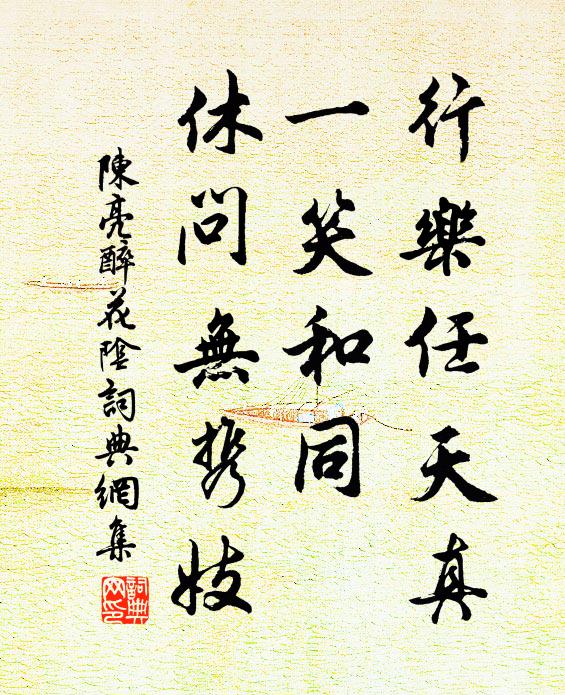 行樂任天真
一笑和同
休問無攜妓
陳亮醉花陰詞典網集
詞典网印